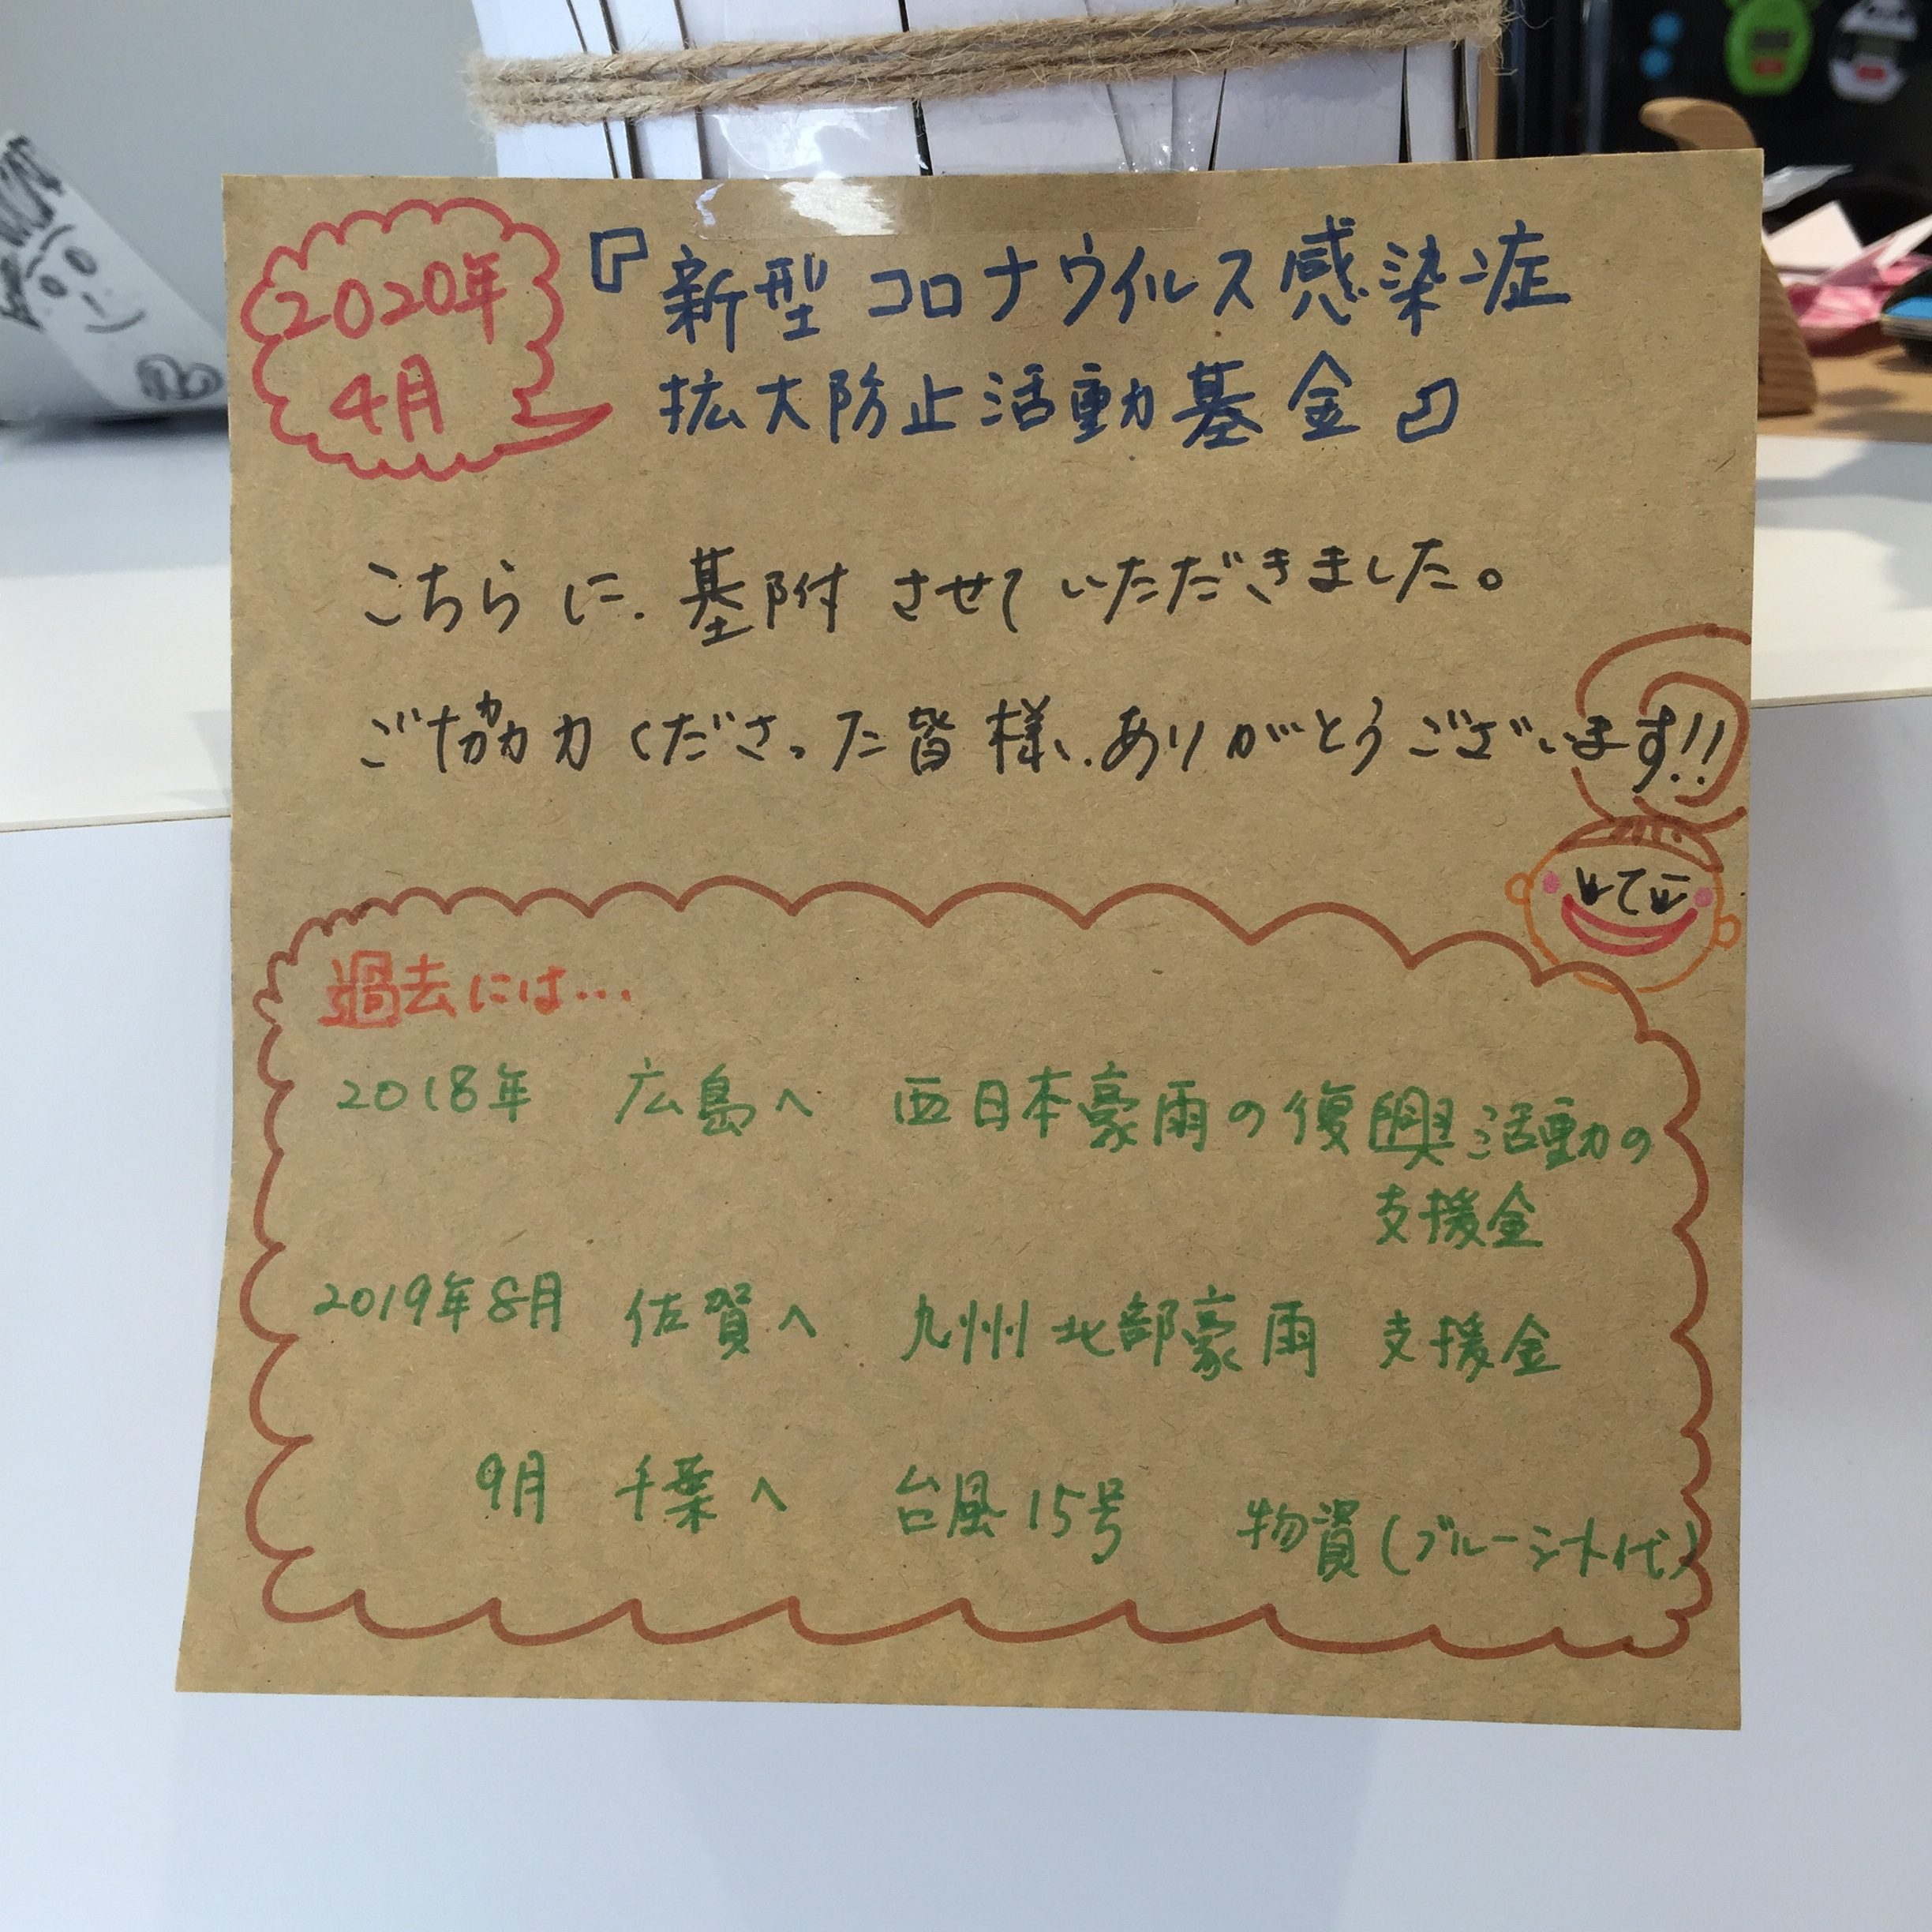 2020年
4月
『新型コロナウイルス感染症
拡大防止活動基金』
こちらに.基附させていただきました。
ご協力くださった皆様、ありがとうございます!!
過去には…
2018年 広島へ 西日本豪雨の復興活動の
支援金
2019年8月 佐賀へ 九州北部豪雨 支援金
9月 千葉へ 台風15号 物資(ブルーシート代)